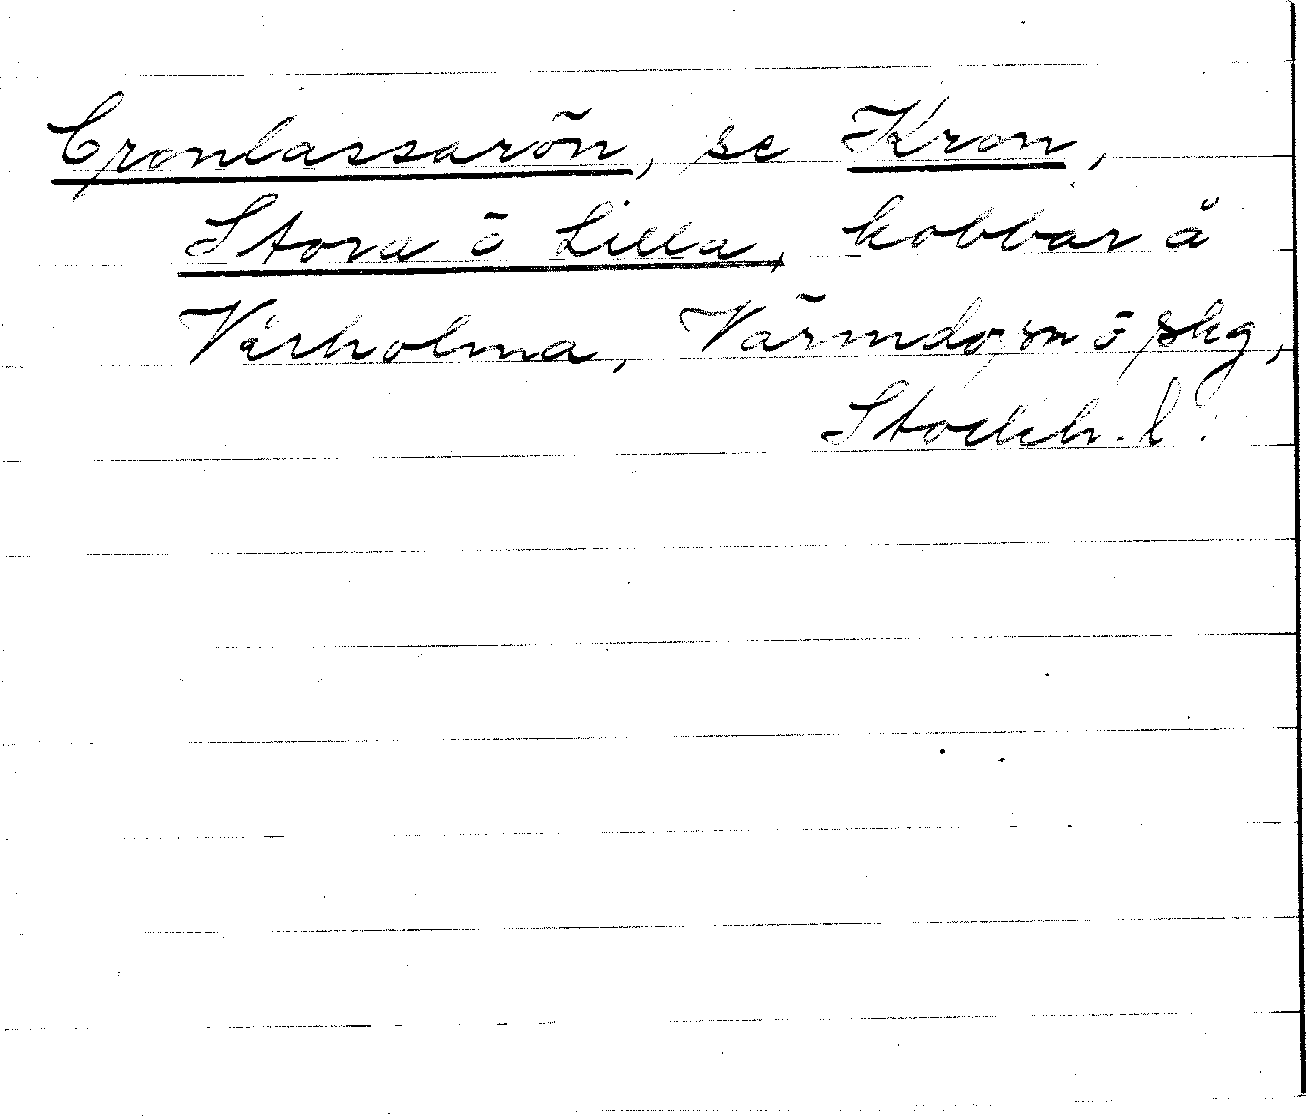 Cronlassarön, se Kron,
Stora ö Lilla, kobbar å
Vårholma, Värmdö sn ö skg,
Stockh. l.